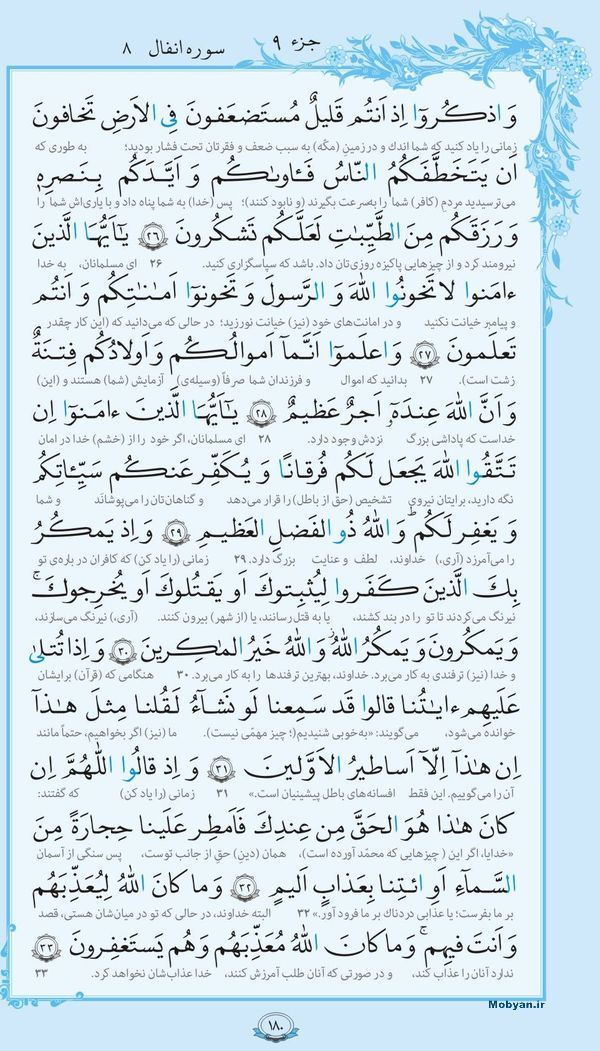 جزء ۹    سوره انفال ۸
وَ اذكُروٓا اِذ اَنتُم قَليلٌ مُستَضعَفونَ فِى الاَرضِ تَخافونَ
زمانی را یاد کنید که شما اندك و در زمینِ (مکّه) به سبب ضعف و فقرتان تحت فشار بودید؛ به طوری که
اَن يَتَخَطَّفَكُمُ النّاسُ فَـٔاوىٰكُم وَ اَيَّدَكُم بِنَصرِهٖ
می‌ترسیدید مردمِ (کافر) شما را به‌سرعت بگیرند (و نابود کنند)؛ پس (خدا) به شما پناه داد و با یاری‌اش شما را
وَ رَزَقَكُم مِنَ الطَّيِّبٰتِ لَعَلَّكُم تَشكُرونَ ٢٦ يـٰٓاَيُّهَا الَّذينَ
نیرومند کرد و از چیزهایی پاکیزه روزی‌تان داد. باشد که سپاسگزاری کنید. ۲۶ ای مسلمانان، به خدا
ءامَنوا لا تَخونُوا اللهَ وَ الرَّسولَ وَ تَخونوٓا اَمٰنٰتِكُم وَ اَنتُم
و پیامبر خیانت نکنید و در امانت‌های خود (نیز) خیانت نورزید؛ در حالی که می‌دانید که (این کار چقدر
تَعلَمونَ ٢٧ وَ اعلَموٓا اَنَّمآ اَموالُكُم وَ اَولادُكُم فِتنَةٌ
زشت است). ۲۷ بدانید که اموال و فرزندان شما صرفاً (وسیله‌ی) آزمایش (شما) هستند و (این)
وَ اَنَّ اللهَ عِندَهٗٓ اَجرٌ عَظيمٌ ٢٨ يـٰٓاَيُّهَا الَّذينَ ءامَنوٓا اِن
خداست که پاداشی بزرگ نزدش وجود دارد. ۲۸ ای مسلمانان، اگر خود را از (خشم) خدا در امان
تَتَّقُوا اللهَ يَجعَل لَكُم فُرقانًا وَ يُكَفِّر عَنكُم سَيِّـٔاتِكُم
نگه دارید، برایتان نیروی تشخیص (حق از باطل) را قرار می‌دهد و گناهان‌تان را می‌پوشاند و شما
وَ يَغفِر لَكُم وَ اللهُ ذُو الفَضلِ العَظيمِ ٢٩ وَ اِذ يَمكُرُ
را می‌آمرزد (آری،) خداوند، لطف و عنایت بزرگ دارد. ۲۹ زمانی (را یاد کن) که کافران درباره‌ی تو
بِكَ الَّذينَ كَفَروا لِيُثبِتوكَ اَو يَقتُلوكَ اَو يُخرِجوكَ ۚ
نیرنگ می‌کردند تا تو را در بند کشند، یا به قتل رسانند، یا (از شهر) بیرون کنند. (آری،) نیرنگ می‌سازند،
وَ يَمكُرونَ وَ يَمكُرُ اللهُ وَ اللهُ خَيرُ المٰكِرينَ ٣٠ وَ اِذا تُتلىٰ
و خدا (نیز) ترفندی به کار می‌برد. خداوند، بهترین ترفندها را به کار می‌برد. ۳۰ هنگامی که (قرآن) برایشان
عَلَيهِم ءايٰتُنا قالوا قَد سَمِعنا لَو نَشآءُ لَقُلنا مِثلَ هٰذآ
خوانده می‌شود، می‌گویند: «به‌خوبی شنیدیم(؛ چیز مهمّی نیست). ما (نیز) اگر بخواهیم، حتماً مانند
اِن هٰذآ اِلّآ اَساطيرُ الاَوَّلينَ ٣١ وَ اِذ قالُوا اللّٰهُمَّ اِن
آن را می‌گوییم. این فقط افسانه‌های باطل پیشینیان است.» ۳۱ زمانی (را یاد کن) که گفتند:
كانَ هٰذا هُوَ الحَقَّ مِن عِندِكَ فَاَمطِر عَلَينا حِجارَةً مِنَ
«خدایا، اگر این ( چیزهایی که محمّد آورده است)، همان (دینِ) حقِ از جانب توست، پس سنگی از آسمان
السَّمآءِ اَوِ ائتِنا بِعَذابٍ اَليمٍ ٣٢ وَ ما كانَ اللهُ لِيُعَذِّبَهُم
بر ما بفرست؛ یا عذابی دردناك بر ما فرود آور.» ۳۲ البته خداوند، در حالی که تو در میان‌شان هستی، قصد
وَ اَنتَ فيهِم ۚ وَ ما كانَ اللهُ مُعَذِّبَهُم وَ هُم يَستَغفِرونَ ٣٣
ندارد آنان را عذاب کند، و در صورتی که آنان طلب آمرزش کنند، خدا عذاب‌شان نخواهد کرد. ۳۳
Mobyan.ir
١٨٠